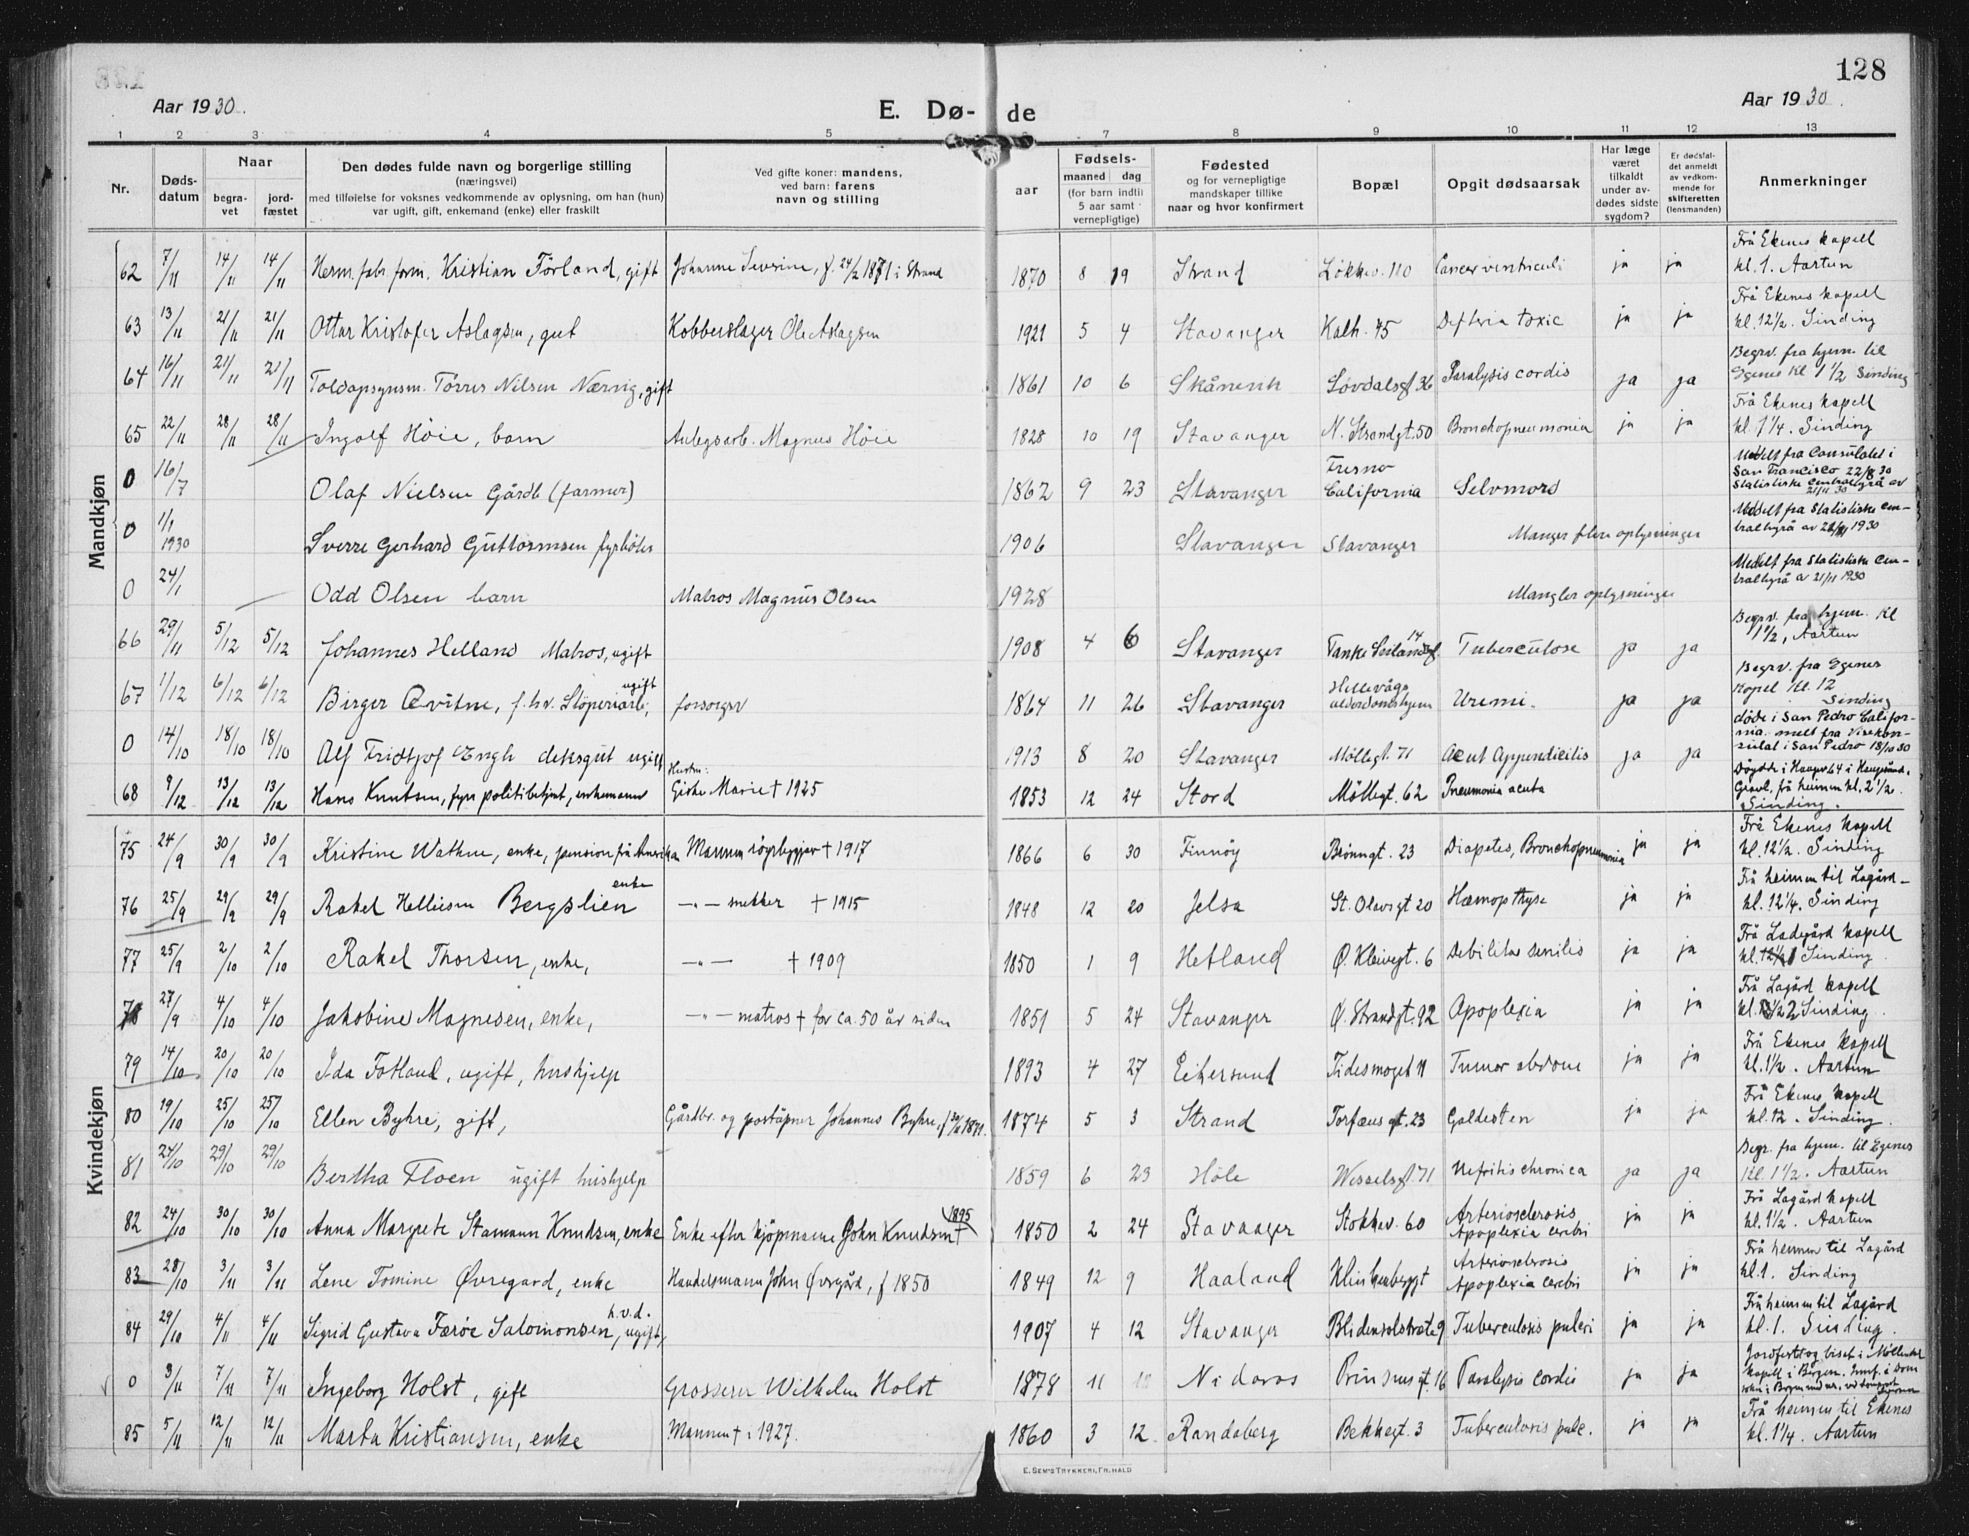 128
Aar 1930.
E. Dø-
de
Aar 1930.
1 2 3 4 5 6 7 8 9 10 11 12 13
Nr.
Døds-
datum
Naar
begra-
vet
jord-
fæstet
Den dødes fulde navn og borgerlige stilling
(næringsvei)
med tilføielse for voksnes vedkommende av oplysning, om han (hun)
var ugift, gift, enkemand (enke) eller fraskilt
Ved gifte koner: mandens,
ved barn: farens
navn og stilling
aar
Fødsels-
maaned dag
(for barn indtil
5 aar samt
vernepligtige)
Fødested
og for vernepligtige
mandskaper tillike
naar og hvor konfirmert
Bopæl
Opgit dødsaarsak
Har læge
været
tilkaldt
under av-
dødes sidste
sygdom?
Er dødsfal-
det anmeldt
av vedkom-
mende for
skifteretten
(lensmanden)
Anmerkninger
Mandkjøn
62 7/11 14/11 14/11 Herm. fabr. form. Kristian Törland, gift Johanne Severine, f. 24/2 1871 i Strand 1870 8 19 Strand Løkkev. 110 Cancer ventriculi ja ja Frå Ekenes kapell kl. 1. Aartun
63 13/11 21/11 21/11 Ottar Kristofer Aslagsen, gut Kobberslager Ole Aslagsen 1921 5 4 Stavanger Kalh. 45 Difteria toxic ja ja Frå Ekenes kapell kl. 12 1/2. Sinding
64 16/11 21/11 21/11 Toldopsynsm. Törres Nilsen Nærvig, gift 1861 10 6 Skånevik Løvdalsgt 36 Paralysis cordis ja ja Begrv. fra hjem. til Egenes kl 1 1/2 Sinding
65 22/11 28/11 28/11 Ingolf Høie, barn Anlegsarb. Magnus Höie 1828 10 19 Stavanger N. Strandgt. 50 Bronchopneumonia ja ja Frå Ekenes kapell kl. 1 1/4. Sinding
0 16/7 Olaf Nielsen Gårdb (farmer) 1862 9 23 Stavanger Fresno California Selvmord Meddelt fra Consulatet i San Francisco 22/8 30 Statistiske Centralbyrå av 21/11 30
0 1/1 1930 Sverre Gerhard Guttormsen fyrbøter 1906 Stavanger Stavanger Manger flere oplysninger Meddelt fra Statistiske Cen-tralbyrå av 21/11 1930
0 24/1 Odd Olsen barn Matros Magnus Olsen 1928 Mangler oplysninger Meddelt fra Statistiske Cen-tralbyrå av 21/11 1930
66 29/11 5/12 5/12 Johannes Helland Matros, ugift 1908 4 6 Stavanger Tanke Svilandsgt. 14 Tuberculose ja ja Begrv. fra hjem. kl 1 1/2, Aartun
67 1/12 6/12 6/12 Birger Qvitne, f. hv. Stöperiarb., ugift forsørger 1864 11 26 Stavanger Hillevåg alderdomshjem Uremi. ja ja Begrv. fra Egenes Kapel kl. 12 Sinding
0 14/10 18/10 18/10 Alf Fridtjof Engh deksgut ugift 1913 8 20 Stavanger Möllegt. 71 Acut Appendicitis ja ja døde i San Pedro Califor-nia. melt fra Visekon-sulat i San Pedro 18/10 30
68 9/12 13/12 13/12 Hans Knutsen, fyrr politibetjent, enkemann Hustru: Giske Marie † 1925 1853 12 24 Stord Møllegt. 62 Pneumonia acuta Gravl. frå heimen kl. 2 1/2. Sinding.
Kvindekjøn
75 24/9 30/9 30/9 Kristine Wathne, enke, pension frå Amerika Mannen röyrleggjar † 1917 1866 6 30 Finnöy Brönngt. 23 Diapetes, Bronchopneumonia ja ja Frå Ekenes kapell kl. 12 1/2. Sinding
76 25/9 29/9 29/9 Rakel Helliesen Bergslien enke -„- snekker † 1915 1848 12 20 Jelsa St. Olavsgt 20 Hæmopthyse ja ja Frå heimen til Lagård- kl. 12 1/4. Sinding
77 25/9 2/10 2/10 Rakel Thorsen, enke, -„- † 1909 1850 1 9 Hetland Ø. Kleivegt. 6 Debilitas senilis ja ja Frå Ladegård kapell kl. 1 Sinding
78 27/9 4/10 4/10 Jakobine Magnesen, enke, -„- matros † for ca. 50 år siden 1851 5 24 Stavanger Ø. Strandgt. 92 Apoplexia ja ja Frå Lagård kapell kl. 2 Sinding.
79 14/10 20/10 20/10 Ida Fotland, ugift, hushjelp 1893 4 27 Eikersund Tidesmoget 11 Tumor abdom ja ja Frå Ekenes kapell kl. 1 1/2. Aartun
80 19/10 25/10 25/10 Ellen Byhre, gift, Gårdbr. og poståpner Johannes Byhre, 1874 5 3 Strand Torfæus gt. 23 Galdesten ja ja Frå Ekenes kapell kl. 12. Sinding.
81 24/10 29/10 29/10 Bertha Floen ugift hushjelp 1859 6 23 Höle Wesselsgt. 71 Nefritis chronica ja ja Begr. fra hjem. til Egenes Kl. 1 1/2. Aartun
82 24/10 30/10 30/10 Anna Margrete Stamann Knudsen, enke Enke efter kjöpmann John Knudsen † 1895 1850 2 24 Stavanger Stokkev. 60 Arteriosclerosis Apoplexia cerebri ja ja Frå Lagård kapell kl. 1 1/2. Aartun
83 28/10 3/11 3/11 Lene Tomine Øvregard, enke Handelsmann John Øvregård, f 1850 1849 12 9 Haaland Klinkenberggt Arteriosclerosis Apoplexia cerebri ja ja Frå heimen til Lagård kl. 1. Sinding
84 29/10 4/11 4/11 Sigrid Gustava Færöe Salomonsen, h.v.d. ugift, 1907 4 12 Stavanger Blidensolstræte 9 Tuberculosis pulm ja ja Frå heimen til Lagård kl. 1. Sinding.
0 3/11 7/11 7/11 Ingeborg Holst, gift Grosserer Wilhelm Holst 1878 11 Nidaros Prinsensgt. 16 Paralysis cordis ja ja Jordfest og biset i Möllendal kapell i Bergen.
85 5/11 12/11 12/11 Marta Kristiansen, enke Mannen † i 1927. 1860 3 12 Randaberg Bekkegt. 3 Tuberculosis pulm. ja ja Frå heimen til Ekenes kl. 1 1/4. Aartun
E. SEM'S TRYKKERI, FR. HALD